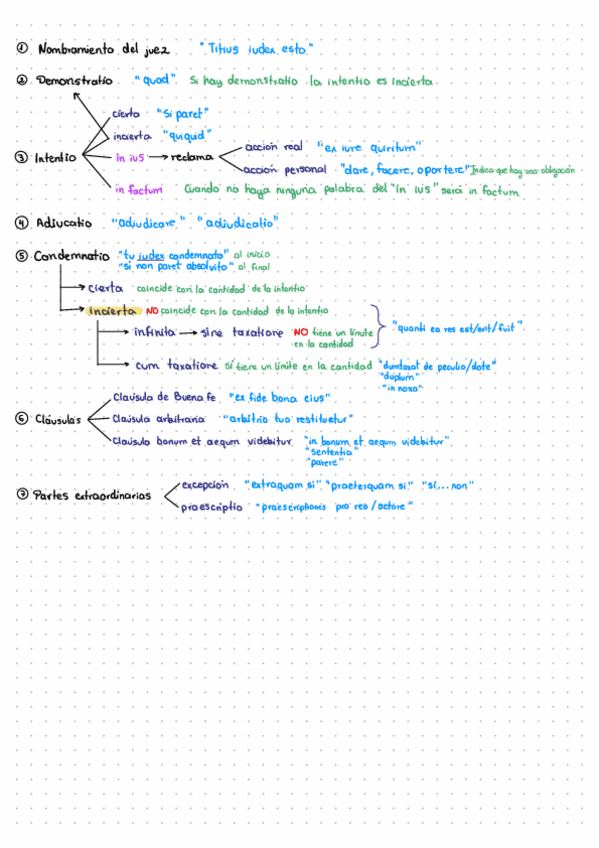 ① Nombramiento del juez "Titius iudex esto."
② Demonstratio "quod". Si hay demonstratio la intentio es incierta.
cierta "Si paret"
incierta "quiquid"
③ Intentio In ius → reclama
acción real "ex iure quiritum"
acción personal "dare, facere, oportere" Indica que hay una obligación
in factum Cuando no haya ninguna palabra del "in ius" será in factum
④ Adiucatio "adiudicare" "adiudicatio"
⑤ Condemnatio "tu iudex condemnato" al inicio
"si non paret absolvito" al final
cierta coincide con la cantidad de la intentio
incierta NO coincide con la cantidad de la intentio
infinita → sine taxatione NO tiene un límite
en la cantidad
"quanti ea res est/erit/fuit"
cum taxatione sí tiene un límite en la cantidad "dumtaxat de peculio/dote"
"duplum"
"in noxa"
Claúsula de Buena fe "ex fide bona eius"
⑥ Claúsulas Claúsula arbitraria "arbitrio tuo restituetur"
Claúsula bonum et aequm videbitur "in bonum et aequm videbitur"
"sententia"
"parere"
⑦ Partes extraordinarias
excepción "extraquam si" "praeterquam si" "si...non"
praescriptio "praescriptionis pro reo/actore"